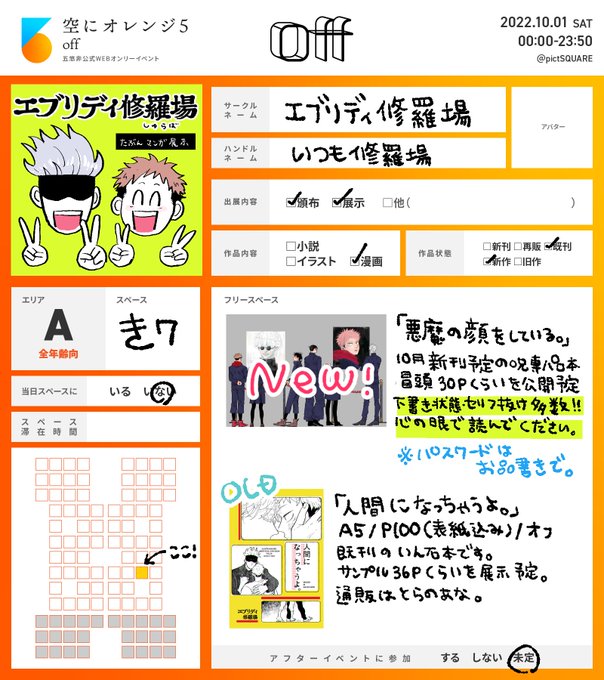 空にオレンジ5
off
五悠非公式WEBオンリーイベント
off
2022.10.01 SAT
00:00-23:50
@pictSQUARE
エブリディ修羅場
しゅらば
たぶんマンガ展示
サークルネーム
エブリディ修羅場
ハンドルネーム
いつも修羅場
アバター
出展内容
頒布 展示 他( )
作品内容
小説
イラスト 漫画
作品状態
新刊 再販 既刊
新作 旧作
エリア
A
全年齢向
スペース
き7
当日スペースに いる いない
スペース滞在時間
ここ!
フリースペース
New!
「悪魔の顔をしている。」
10月新刊予定の呪専パロ本
冒頭30Pくらいを公開予定
下書き状態セリフ抜け多数!!
心の眼で読んでください。
※パスワードは
お品書きで。
OLD
人間に
なっちゃうよ。
エブリディ
修羅場
「人間になっちゃうよ。」
A5/P100(表紙込み)/オフ
既刊のいん石本です。
サンプル36Pくらいを展示予定。
通販はとらのあな。
アフターイベントに参加 する しない 未定